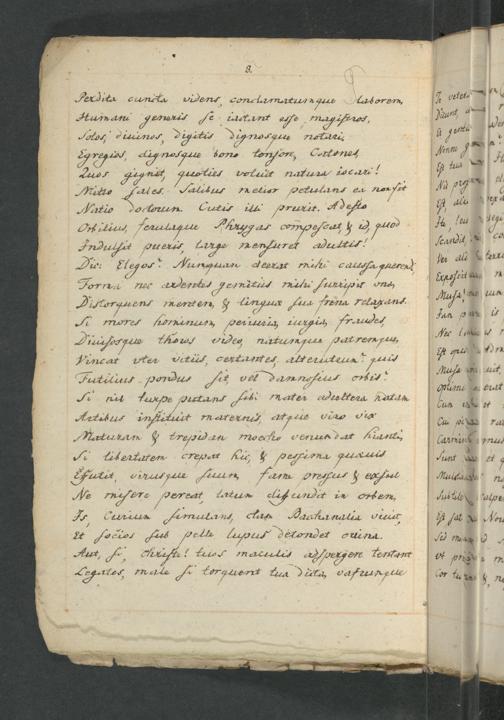 8.
Perdita cuncta videns, conclamatumque laborem,
Humani generis se iactant esse magistros,
Solos, divinos, digitis dignosque notari,
Egregios, dignosque bono tonsore, Catones,
Quos gignit, quoties voluit natura iocari!
Mitto sales. Salibus melior petulans ea non sit
Natio doctorum. Cutis illi prurit. Adesto
Orbilius, ferulaque Phrygas compescat, & id, quod
Indulsit pueris, large mensuret adultis!
Dic: Elegos? Nunquam deerat mihi caussa querendi,
Forma nec ardentis gemitus mihi surripit oris,
Distorquens mentem, & linguæ sua frena relaxans.
Si mores hominum, periuria, iurgia, fraudes,
Divisosque thoros video, natumque patremque,
Vincat uter vitiis, certantes, alterutrum? quis
Futilius pondus sit, vel damnosius orbis?
Si nil turpe putans sibi mater adultera natam
Artibus instituit maternis, atque viro vix
Maturam & trepidam moecho venundat hianti,
Si libertatem crepat hic, & pessima quævis
Effutit, virusque suum, fame pressus & exsul
Ne misere pereat, latum diffundit in orbem,
Is, Curium simulans, clam Bachanalia vivit,
Et socios sub pelle lupus detondet ovina.
Aut, si, Christe! tuos maculis adspergere tentant
Legatos, male si torquent tua dicta, vafrumque